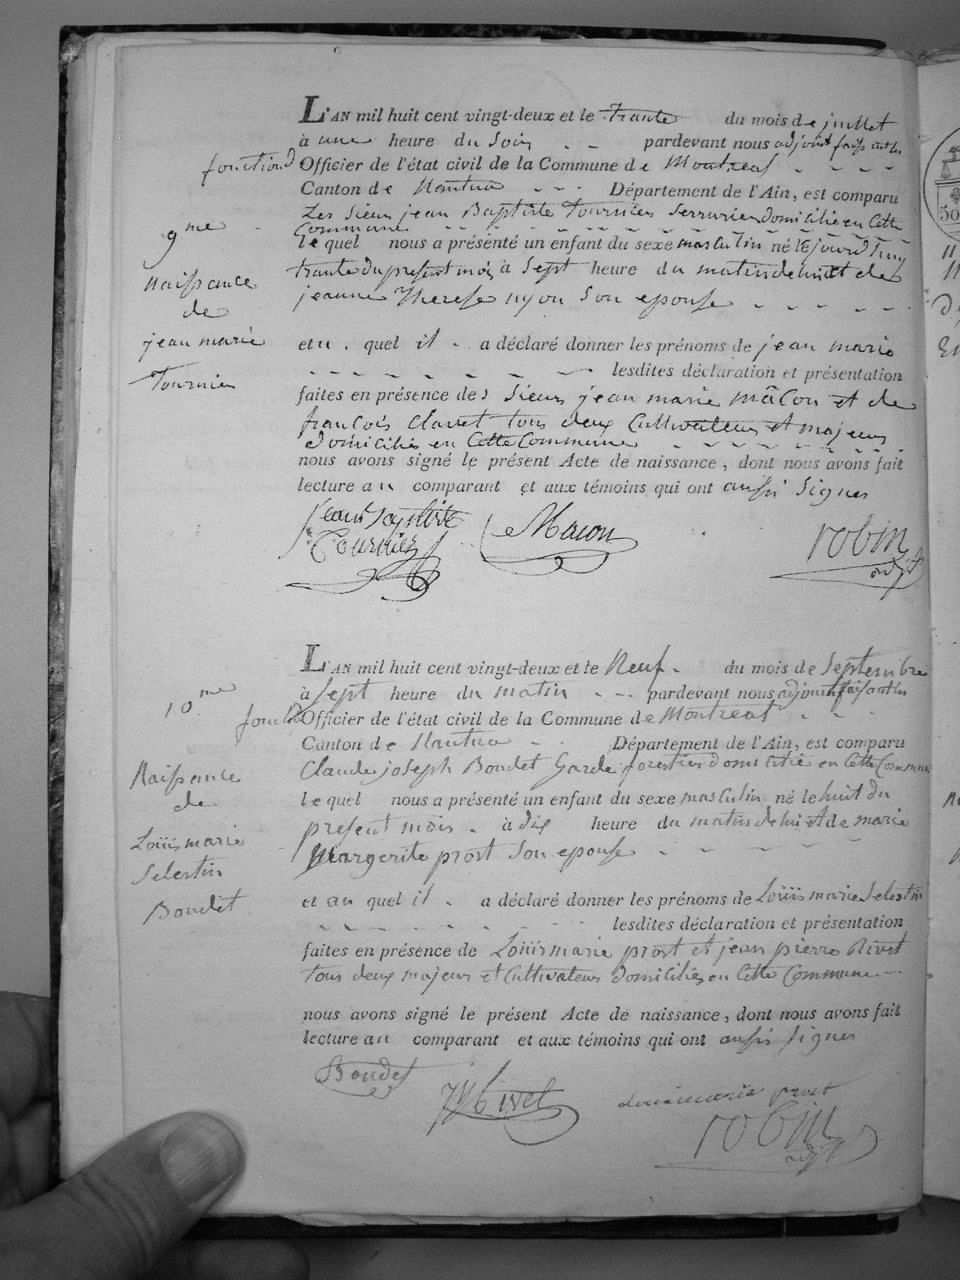 L'AN mil huit cent vingt-deux et le Trante du mois de juillet
à une heure du Soir pardevant nous adjoint faisant les
fonctions Officier de l'état civil de la Commune de Montreal
Canton de Nantua Département de l'Ain, est comparu
Les Sieur jean Baptiste Tournier Serrurier Domicilié en Cette
Commune
9me
le quel nous a présenté un enfant du sexe masculin né le jourd'huy
trante du present mois à Sept heure du matin de lui et de
jeanne Therese nyon Son epouse
Naissance
de
jean marie
Tournier
et u quel il a déclaré donner les prénoms de jean marie
lesdites déclaration et présentation
faites en présence des Sieurs jean marie mâcon et de
françois Claret tous deux Cultivateurs et majeurs
Domiciliés en Cette Commune
nous avons signé le présent Acte de naissance, dont nous avons fait
lecture au comparant et aux témoins qui ont aussi Signes
Jean Baptiste
Tournier
Macon
robin
adjt
L'AN mil huit cent vingt-deux et le Neuf du mois de Septembre
10me
à Sept heure du matin pardevant nous adjoint faisant les
fonct Officier de l'état civil de la Commune de Montreal
Canton de Nantua Département de l'Ain, est comparu
Claude joseph Boudet Garde forestier domicilié en Cette Commune
Naissance
de
Loüis marie
Selestin
Boudet
le quel nous a présenté un enfant du sexe masculin né le huit du
present mois à dix heure du matin de lui et de marie
Margerite prost Son epouse
et au quel il a déclaré donner les prénoms de Loüis marie Selestin
lesdites déclaration et présentation
faites en présence de Loüis marie prost et jean pierre Rivet
tous deux majeurs et Cultivateurs Domiciliés en Cette Commune
nous avons signé le présent Acte de naissance, dont nous avons fait
lecture au comparant et aux témoins qui ont aussi signes
Boudet
Rivet
Louis marie prost
robin
adjt